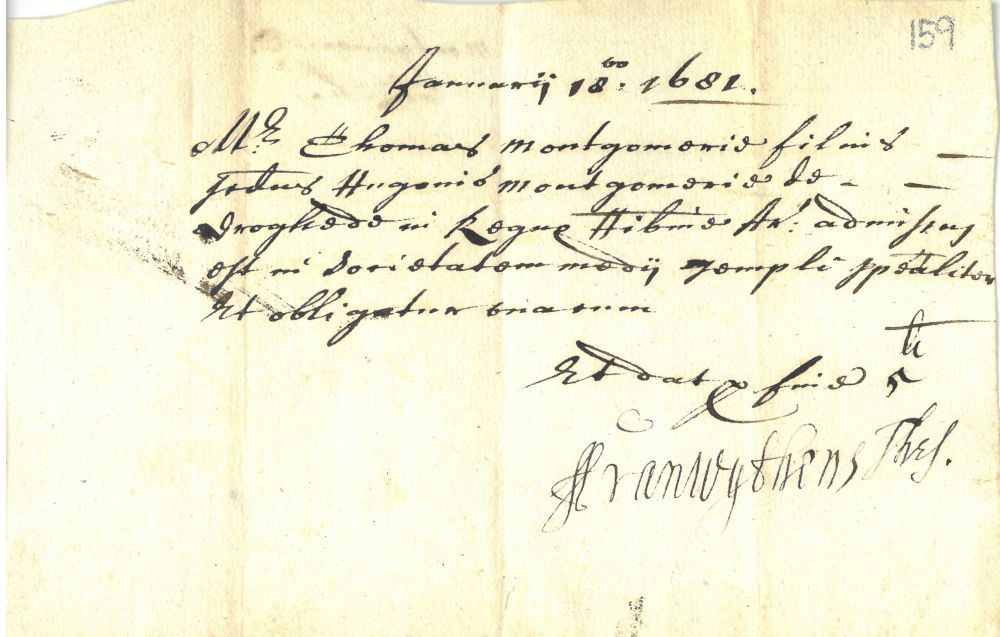 159
Januarij 18o: 1681.
Mr Thomas Montgomerie filius
scdus Hugonis Montgomerie de
Droghede in Regno Hibnie Ar: admissus
est in Societatem medij Templi spealiter
Et obligatur una cum
Et dat p fine 5 li
Fran Wythens Thes.